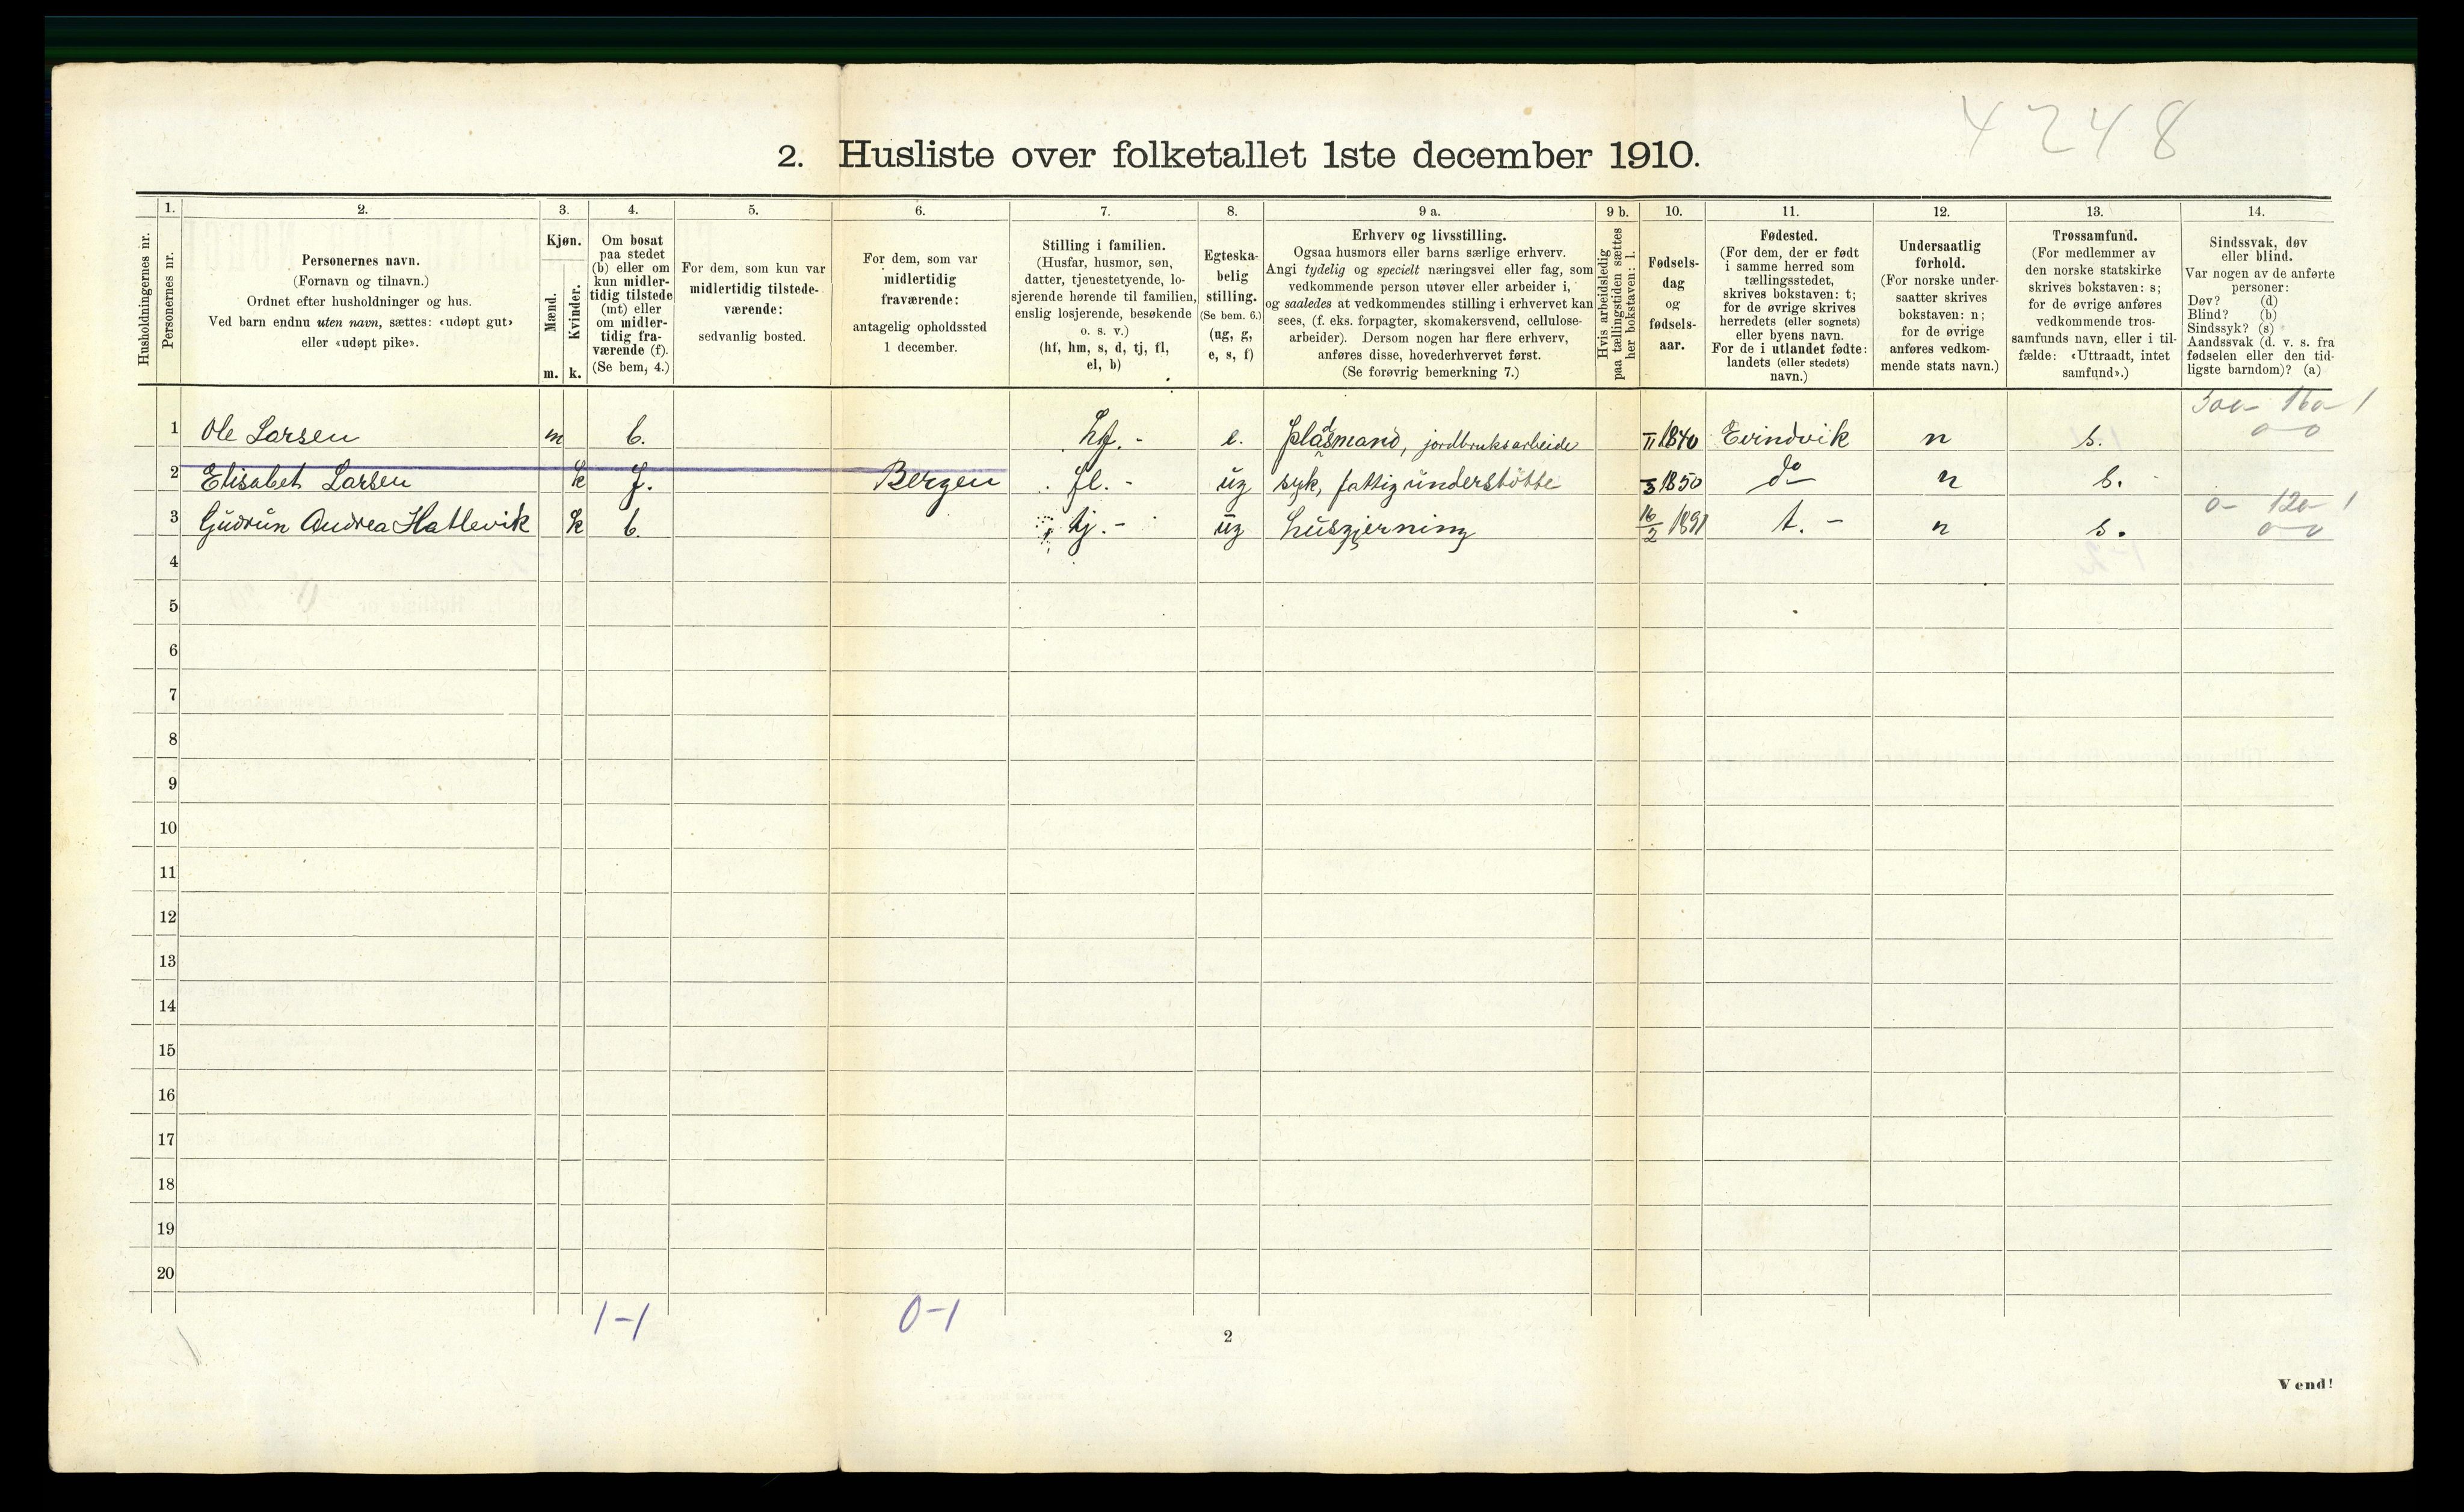 4248
2. Husliste over folketallet 1ste december 1910.
Husholdningernes nr.
1.
Personernes nr.
2.
Personernes navn.
(Fornavn og tilnavn.)
Ordnet efter husholdninger og hus.
Ved barn endnu uten navn, sættes: «udøpt gut»
eller «udøpt pike».
3.
Kjøn.
Mænd.
Kvinder.
m. k.
4.
Om bosat
paa stedet
(b) eller om
kun midler-
tidig tilstede
(mt) eller
om midler-
tidig fra-
værende (f).
(Se bem. 4.)
5.
For dem, som kun var
midlertidig tilstede-
værende:
sedvanlig bosted.
6.
For dem, som var
midlertidig
fraværende:
antagelig opholdssted
1 december.
7.
Stilling i familien.
(Husfar, husmor, søn,
datter, tjenestetyende, lo-
sjerende hørende til familien,
enslig losjerende, besøkende
o. s. v.)
(hf, hm, s, d, tj, fl,
el, b)
8.
Egteska-
belig
stilling.
(Se bem. 6.)
(ug, g,
e, s, f)
9 a.
Erhverv og livsstilling.
Ogsaa husmors eller barns særlige erhverv.
Angi tydelig og specielt næringsvei eller fag, som
vedkommende person utøver eller arbeider i,
og saaledes at vedkommendes stilling i erhvervet kan
sees, (f. eks. forpagter, skomakersvend, cellulose-
arbeider). Dersom nogen har flere erhverv,
anføres disse, hovederhvervet først.
(Se forøvrig bemerkning 7.)
9 b.
Hvis arbeidsledig
paa tællingstiden sættes
her bokstaven: l.
10.
Fødsels-
dag
og
fødsels-
aar.
11.
Fødested.
(For dem, der er født
i samme herred som
tællingsstedet,
skrives bokstaven: t;
for de øvrige skrives
herredets (eller sognets)
eller byens navn.
For de i utlandet fødte:
landets (eller stedets)
navn.)
12.
Undersaatlig
forhold.
(For norske under-
saatter skrives
bokstaven: n;
for de øvrige
anføres vedkom-
mende stats navn.)
13.
Trossamfund.
(For medlemmer av
den norske statskirke
skrives bokstaven: s;
for de øvrige anføres
vedkommende tros-
samfunds navn, eller i til-
fælde: «Uttraadt, intet
samfund».)
14.
Sindssvak, døv
eller blind.
Var nogen av de anførte
personer:
Døv? (d)
Blind? (b)
Sindssyk? (s)
Aandssvak (d. v. s. fra
fødselen eller den tid-
ligste barndom)? (a)
300- 160- 1
1 Ole Larsen m b. hf. - e. pladsmand, jordbruksarbeide 1840 Evindvik n s. 0-0
2 Elisabet Larsen k f. Bergen fl. - ug syk, fattigunderstøtte 1850 do n s.
0- 120- 1
3 Gudrun Andrea Hatlevik k b. tj. - ug husgjerning 16/2 1891 t. - n s. 0-0
4
5
6
7
8
9
10
11
12
13
14
15
16
17
18
19
20
1-1 0-1
2
Vend!